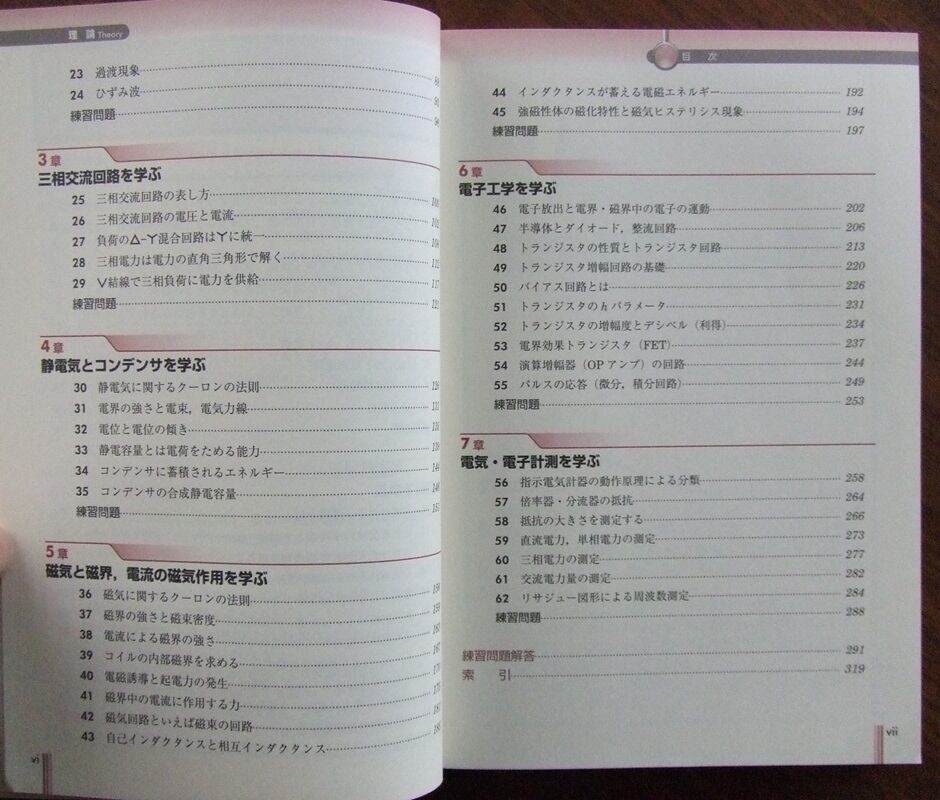 理論 Theory
23 過渡現象
24 ひずみ波
練習問題
3章
三相交流回路を学ぶ
25 三相交流回路の表し方
26 三相交流回路の電圧と電流
27 負荷の△-Y混合回路はYに統一
28 三相電力は電力の直角三角形で解く
29 V結線で三相負荷に電力を供給
練習問題
4章
静電気とコンデンサを学ぶ
30 静電気に関するクーロンの法則
31 電界の強さと電束，電気力線
32 電位と電位の傾き
33 静電容量とは電荷をためる能力
34 コンデンサに蓄積されるエネルギー
35 コンデンサの合成静電容量
練習問題
5章
磁気と磁界，電流の磁気作用を学ぶ
36 磁気に関するクーロンの法則
37 磁界の強さと磁束密度
38 電流による磁界の強さ
39 コイルの内部磁界を求める
40 電磁誘導と起電力の発生
41 磁界中の電流に作用する力
42 磁気回路といえば磁束の回路
43 自己インダクタンスと相互インダクタンス
vi
目次
44 インダクタンスが蓄える電磁エネルギー 192
45 強磁性体の磁化特性と磁気ヒステリシス現象 194
練習問題 197
6章
電子工学を学ぶ
46 電子放出と電界・磁界中の電子の運動 202
47 半導体とダイオード，整流回路 206
48 トランジスタの性質とトランジスタ回路 213
49 トランジスタ増幅回路の基礎 220
50 バイアス回路とは 226
51 トランジスタのhパラメータ 231
52 トランジスタの増幅度とデシベル（利得） 234
53 電界効果トランジスタ（FET） 237
54 演算増幅器（OPアンプ）の回路 244
55 パルスの応答（微分，積分回路） 249
練習問題 253
7章
電気・電子計測を学ぶ
56 指示電気計器の動作原理による分類 258
57 倍率器・分流器の抵抗 264
58 抵抗の大きさを測定する 266
59 直流電力，単相電力の測定 273
60 三相電力の測定 277
61 交流電力量の測定 282
62 リサジュー図形による周波数測定 284
練習問題 288
練習問題解答 291
索引 319
vii